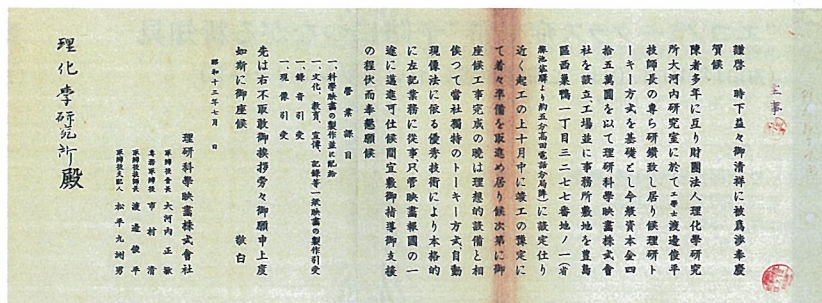 主事
謹啓 時下益々御清祥に被為渉奉慶
賀候
陳者多年に亘り財團法人理化學研究
所大河内研究室に於て工學士渡邊俊平
技師長の専ら研鑚致し居り候理研ト
ーキー方式を基礎とし今般資本金四
拾五萬圓を以て理研科學映畫株式會
社を設立し工場並に事務所敷地を豊島
區西巣鴨一丁目三二七七番地ノ一(省
線池袋驛より約五分高田電話分局隣)に設定仕り
近く起工の上十月中に竣工の豫定に
て着々準備を取進め居り候次第に御
座候工事完成の晩は理想的設備と相
俟つて當社獨特のトーキー方式、自動
現像法に依る優秀技術により本格的
に左記業務に從事し只管映畫報國の一
途に邁進可仕候間宜敷御指導御支援
の程伏而奉懇願候
營業課目
一、科學映畫の製作並に配給
一、文化、教育、宣傳、記録等一般映畫の製作引受
一、録音引受
一、現像引受
先は右不取敢御挨拶旁々御願申上度
如斯に御座候 敬白
昭和十三年七月 日
理研科學映畫株式會社
取締役會長 大河内正敏
專務取締役 市村清
取締役技師長 渡邊俊平
取締役支配人 松平九洲男
理化学研究所殿